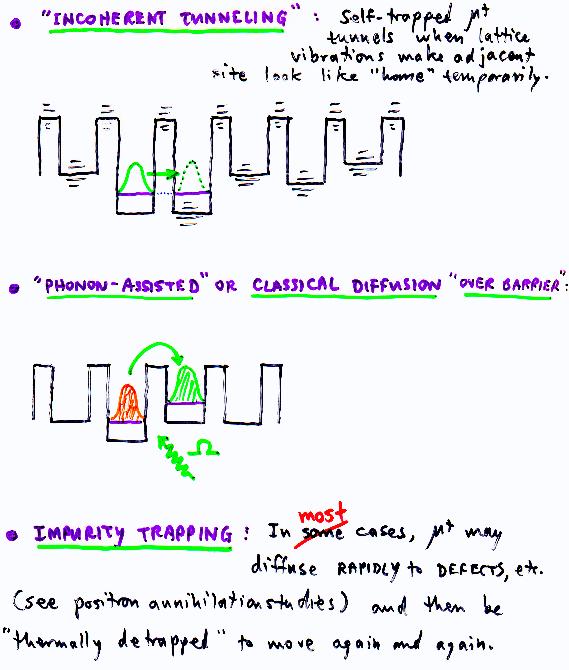 • "INCOHERENT TUNNELING" : Self-trapped μ⁺
tunnels when lattice
vibrations make adjacent
site look like "home" temporarily.
• "PHONON-ASSISTED" OR CLASSICAL DIFFUSION "OVER BARRIER":
Ω
most
• IMPURITY TRAPPING : In some cases, μ⁺ may
diffuse RAPIDLY to DEFECTS, etc.
(see positron annihilation studies) and then be
"thermally detrapped" to move again and again.